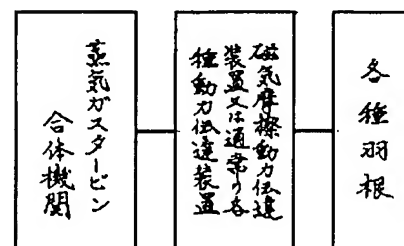 蒸気ガスタービン
合体機関
磁気摩擦動力伝達
装置又は通常の各
種動力伝達装置
各種羽根